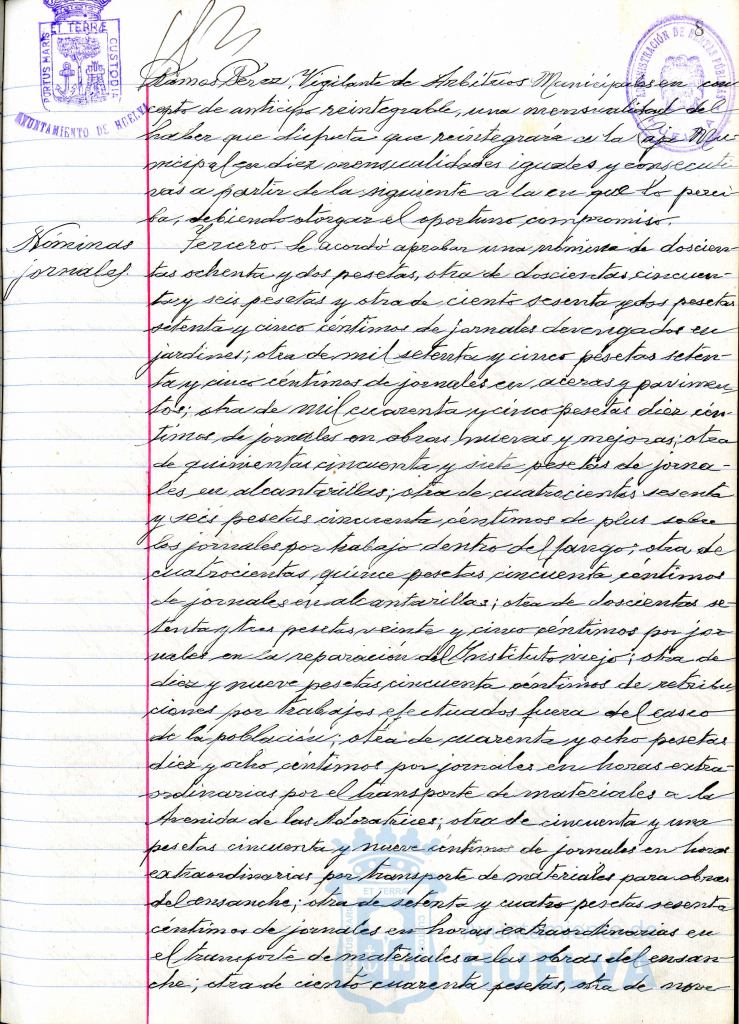 8
ET TERRÆ
PORTUS MARIS
CUSTODIA
AYUNTAMIENTO DE HUELVA
HUELVA
Ramos Perez, Vigilante de Arbitrios Municipales en con-
cepto de anticipo reintegrable, una mensualidad del
haber que disfruta que reintegrará a la Caja Mu-
nicipal en diez mensualidades iguales y consecuti-
vas a partir de la siguiente a la en que lo perci-
ba, debiendo otorgar el oportuno compromiso.
Nóminas
jornales.
Tercero. Se acordó aprobar una nómina de doscien-
tas ochenta y dos pesetas, otra de doscientas cincuen-
ta y seis pesetas y otra de ciento sesenta y dos pesetas
setenta y cinco céntimos de jornales devengados en
jardines; otra de mil setenta y cinco pesetas seten-
ta y cinco céntimos de jornales en aceras y pavimen-
tos; otra de mil cuarenta y cinco pesetas diez cén-
timos de jornales en obras nuevas y mejoras; otra
de quinientas cincuenta y siete pesetas de jorna-
les en alcantarillas; otra de cuatrocientas sesenta
y seis pesetas cincuenta céntimos de plus sobre
los jornales por trabajo dentro del fango; otra de
cuatrocientas quince pesetas cincuenta céntimos
de jornales en alcantarillas; otra de doscientas se-
tenta y tres pesetas veinte y cinco céntimos por jor-
nales en la reparación del Instituto viejo; otra de
diez y nueve pesetas cincuenta céntimos de retribu-
ciones por trabajos efectuados fuera del casco
de la población; otra de cuarenta y ocho pesetas
diez y ocho céntimos por jornales en horas extra-
ordinarias por el transporte de materiales a la
Avenida de las Adoratrices; otra de cincuenta y una
pesetas cincuenta y nueve céntimos de jornales en horas
extraordinarias por transporte de materiales para obras
del ensanche; otra de setenta y cuatro pesetas sesenta
céntimos de jornales en horas extraordinarias en
el transporte de materiales a las obras del ensan-
che; otra de ciento cuarenta pesetas, otra de nove-
ET TERRA
PORTUS MARIS
CUSTODIA
Ayuntamiento de
HUELVA